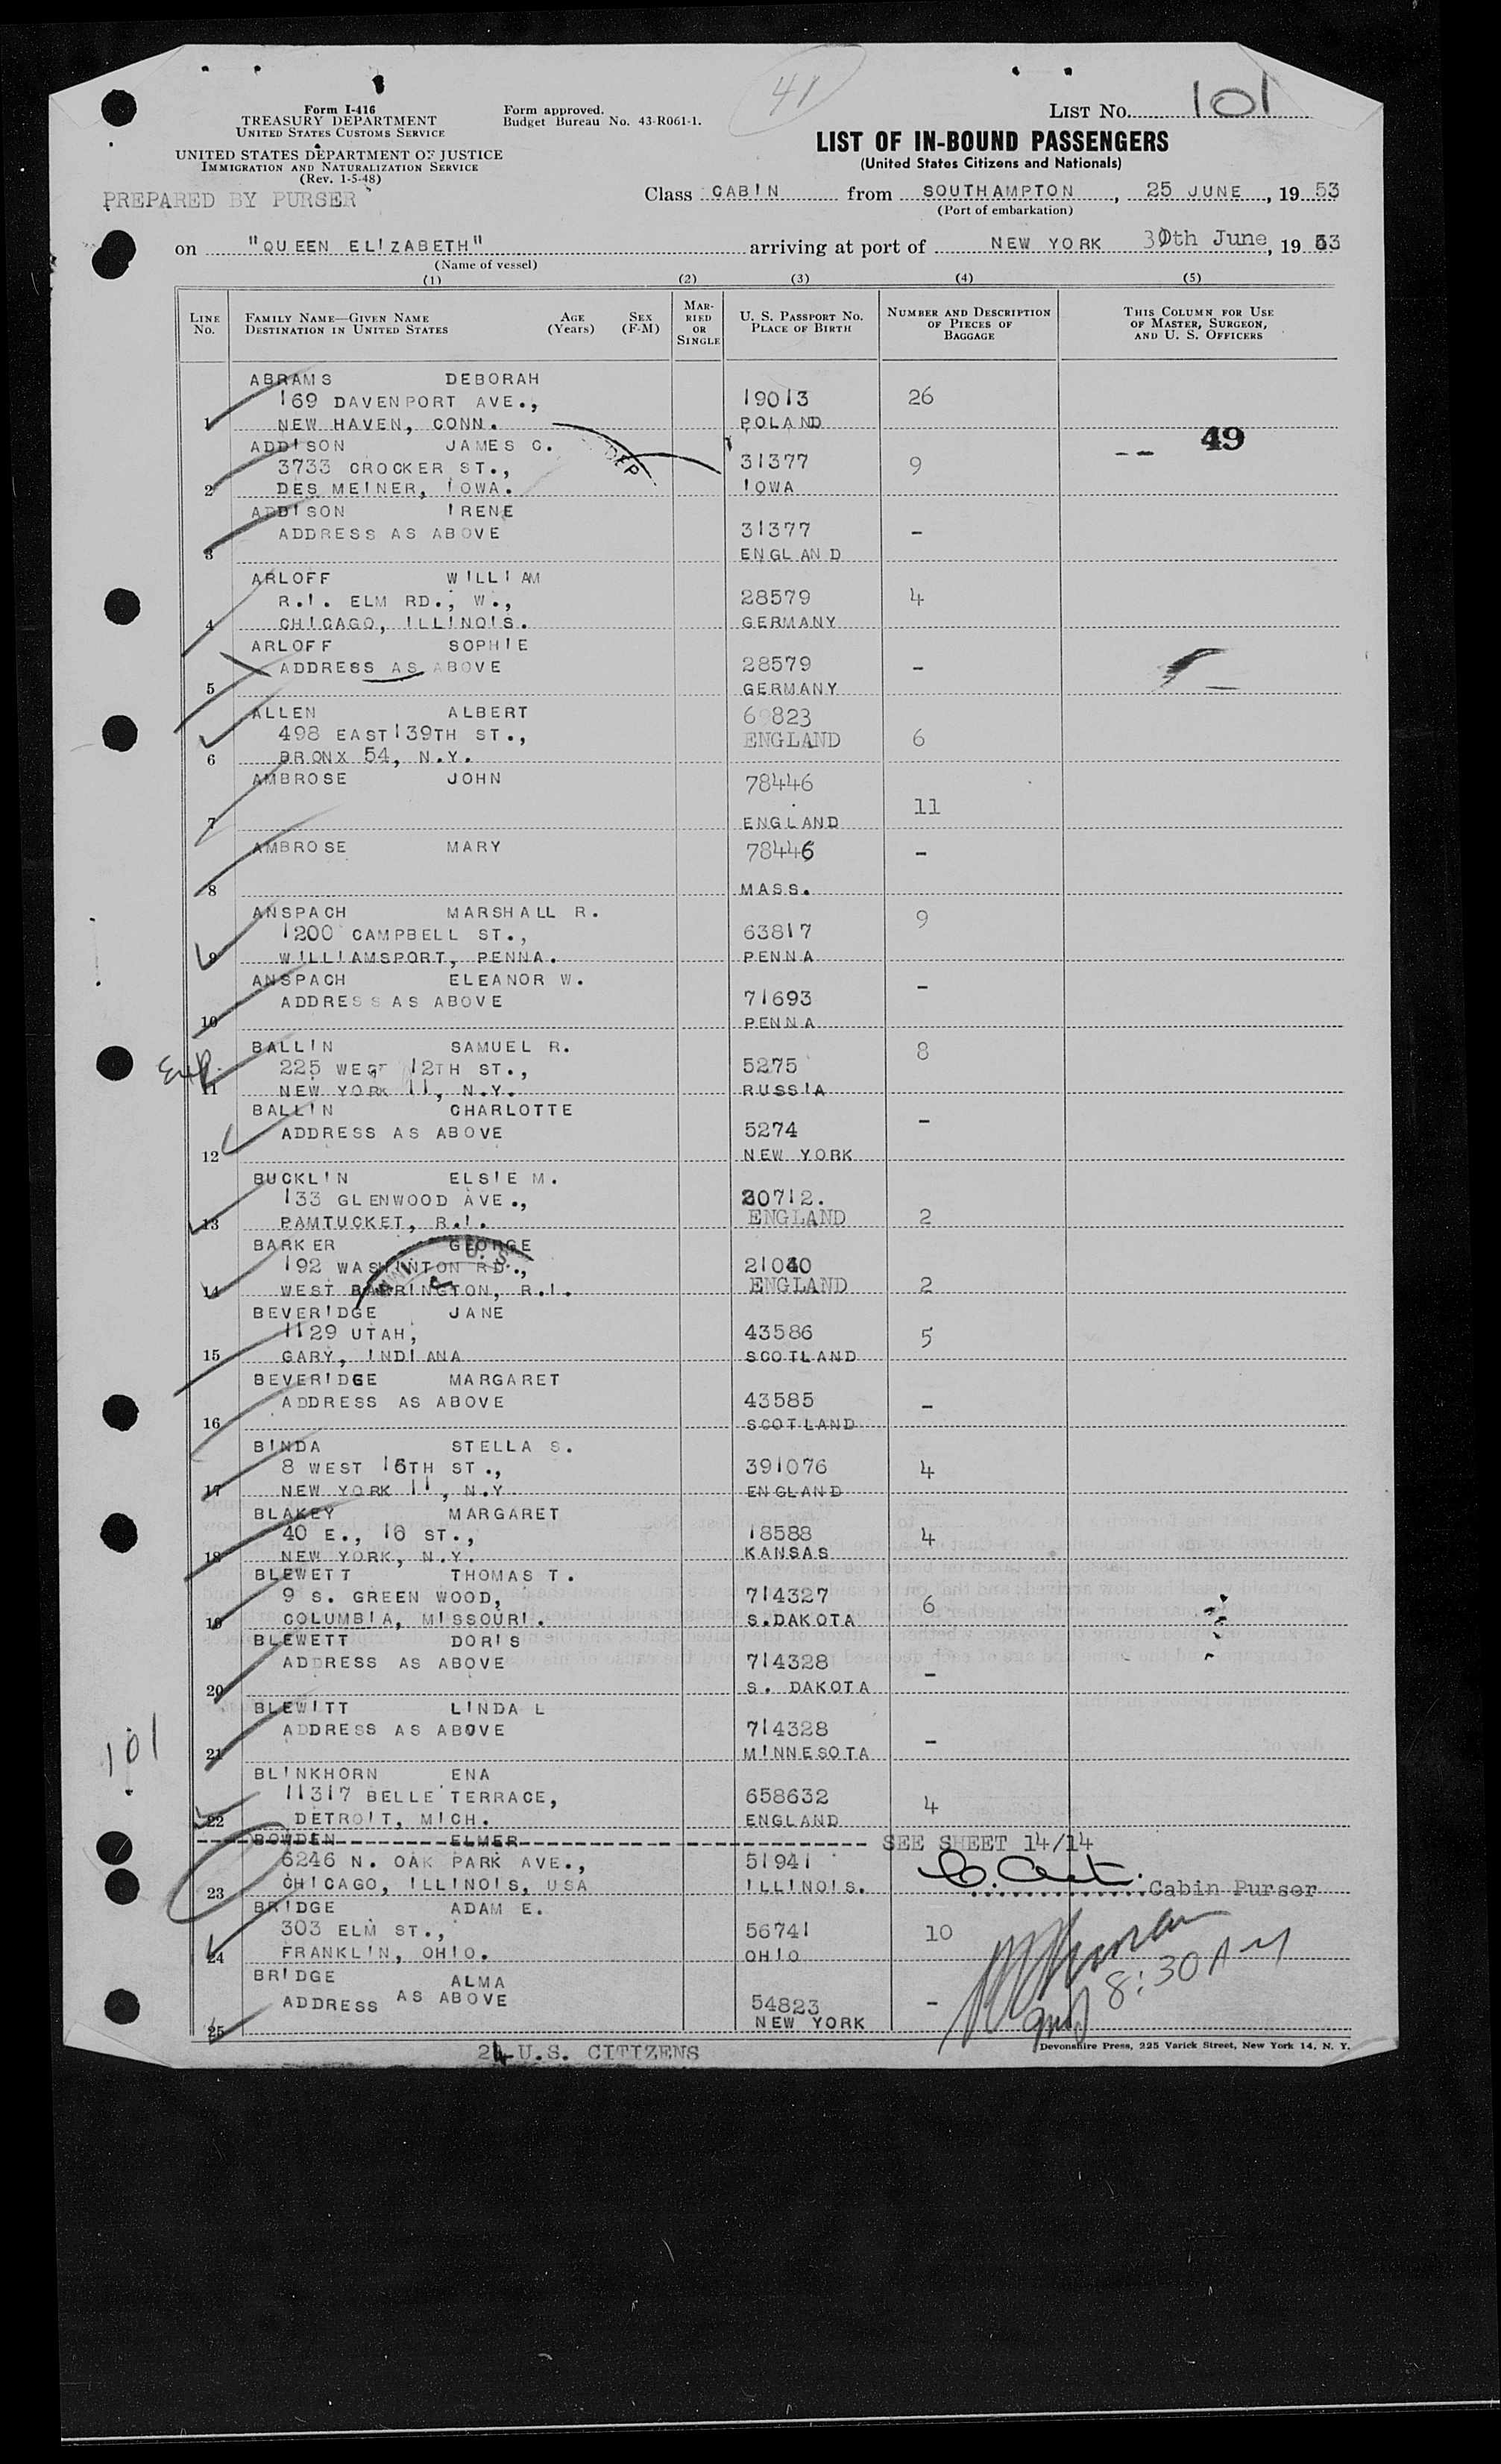 41
Form I-416
TREASURY DEPARTMENT
UNITED STATES CUSTOMS SERVICE
UNITED STATES DEPARTMENT OF JUSTICE
IMMIGRATION AND NATURALIZATION SERVICE
(Rev. 1-5-48)
PREPARED BY PURSER
Form approved.
Budget Bureau No. 43-R061-1.
LIST NO. 101
LIST OF IN-BOUND PASSENGERS
(United States Citizens and Nationals)
Class CABIN from SOUTHAMPTON, 25 JUNE, 19 53
(Port of embarkation)
on "QUEEN ELIZABETH" arriving at port of NEW YORK 30th June, 19 53
(Name of vessel)
(1) (2) (3) (4) (5)
LINE NO.
FAMILY NAME—GIVEN NAME DESTINATION IN UNITED STATES
AGE (Years)
SEX (F-M)
MARRIED OR SINGLE
U. S. PASSPORT NO. PLACE OF BIRTH
NUMBER AND DESCRIPTION OF PIECES OF BAGGAGE
THIS COLUMN FOR USE OF MASTER, SURGEON, AND U. S. OFFICERS
ABRAMS DEBORAH
169 DAVENPORT AVE., 19013 26
1 NEW HAVEN, CONN. POLAND
49
ADDISON JAMES C.
3733 CROCKER ST., 31377 9
2 DES MEINER, IOWA. IOWA
ADDISON IRENE
ADDRESS AS ABOVE 31377 -
3 ENGLAND
ARLOFF WILLIAM
R.I. ELM RD., W., 28579 4
4 CHICAGO, ILLINOIS. GERMANY
ARLOFF SOPHIE
ADDRESS AS ABOVE 28579 -
5 GERMANY
ALLEN ALBERT 69823
498 EAST 139TH ST., ENGLAND 6
6 BRONX 54, N.Y.
AMBROSE JOHN 78446
11
7 ENGLAND
AMBROSE MARY 78446 -
8 MASS.
ANSPACH MARSHALL R. 9
1200 CAMPBELL ST., 63817
9 WILLIAMSPORT, PENNA. PENNA
ANSPACH ELEANOR W. -
ADDRESS AS ABOVE 71693
10 PENNA
BALLIN SAMUEL R. 8
225 WEST 12TH ST., 5275
11 NEW YORK 11, N.Y. RUSSIA
BALLIN CHARLOTTE -
ADDRESS AS ABOVE 5274
12 NEW YORK
BUCKLIN ELSIE M.
133 GLENWOOD AVE., 20712.
13 PAMTUCKET, R.I. ENGLAND 2
BARKER GEORGE
192 WASHINTON RD., 21040
14 WEST BARRINGTON, R.I. ENGLAND 2
BEVERIDGE JANE
1129 UTAH, 43586 5
15 GARY, INDIANA SCOTLAND
BEVERIDGE MARGARET
ADDRESS AS ABOVE 43585 -
16 SCOTLAND
BINDA STELLA S.
8 WEST 16TH ST., 391076 4
17 NEW YORK 11, N.Y. ENGLAND
BLAKEY MARGARET
40 E., 16 ST., 18588 4
18 NEW YORK, N.Y. KANSAS
BLEWETT THOMAS T.
9 S. GREEN WOOD, 714327 6
19 COLUMBIA, MISSOURI. S.DAKOTA
BLEWETT DORIS
ADDRESS AS ABOVE 714328 -
20 S. DAKOTA
BLEWITT LINDA L
ADDRESS AS ABOVE 714328 -
21 MINNESOTA
101
BLINKHORN ENA
11317 BELLE TERRACE, 658632 4
22 DETROIT, MICH. ENGLAND
BOWDEN ELMER SEE SHEET 14/14
6246 N. OAK PARK AVE., 51941
23 CHICAGO, ILLINOIS, USA ILLINOIS. Cabin Purser
BRIDGE ADAM E.
303 ELM ST., 56741 10
24 FRANKLIN, OHIO. OHIO
8:30 AM
BRIDGE ALMA
ADDRESS AS ABOVE 54823 -
25 NEW YORK
24 U.S. CITIZENS
Devonshire Press, 225 Varick Street, New York 14, N. Y.